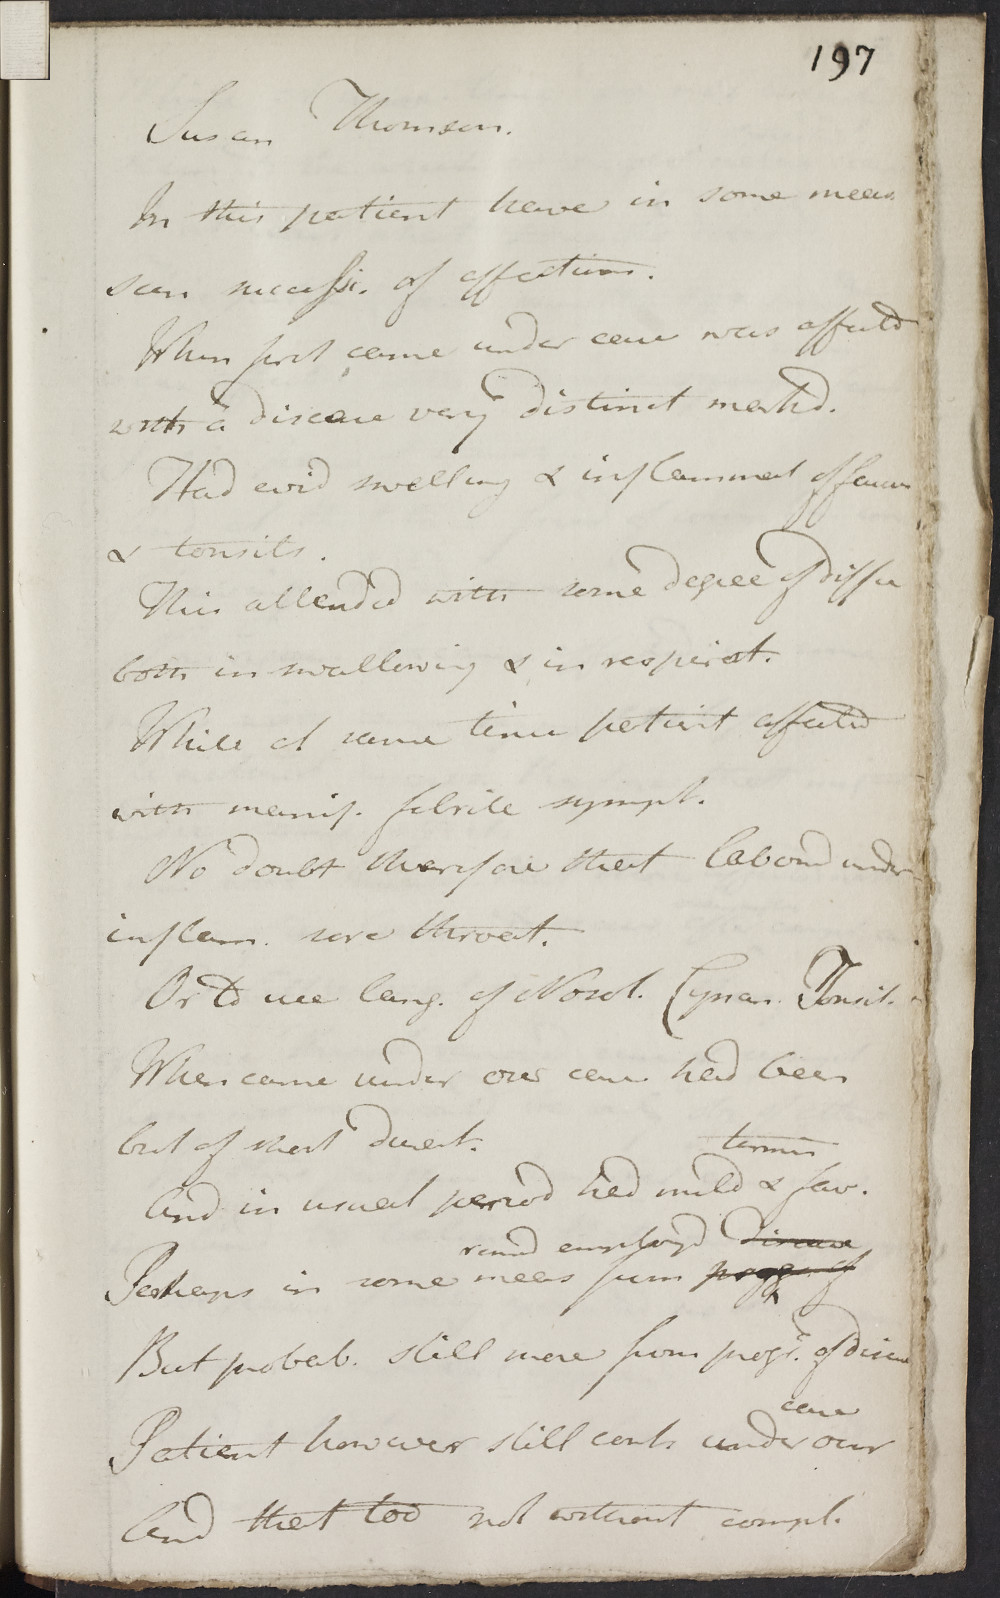 197
Susan Thomson.
In this patient have in some meas
seen successi. of affections.
When first came under care was affectd
with a disease very distinct markd.
Had evid swelling & inflammat of fauces
& tonsils.
This attended with some degree of diffic
both in swallowing & in respirat.
While at same time patient affectd
with manif. febrile sympt.
No doubt therefore that labourd under
inflam. sore throat.
Or to use lang. of Nosol. Cynan. Tonsil.
When came under our care had been
but of short durat.
termin
And in usual period had mild & fav.
remd employd disease
Perhaps in some meas from progr of
But probab. still more from progr. of disease
care
Patient however still conts under our
And that too not without compl.